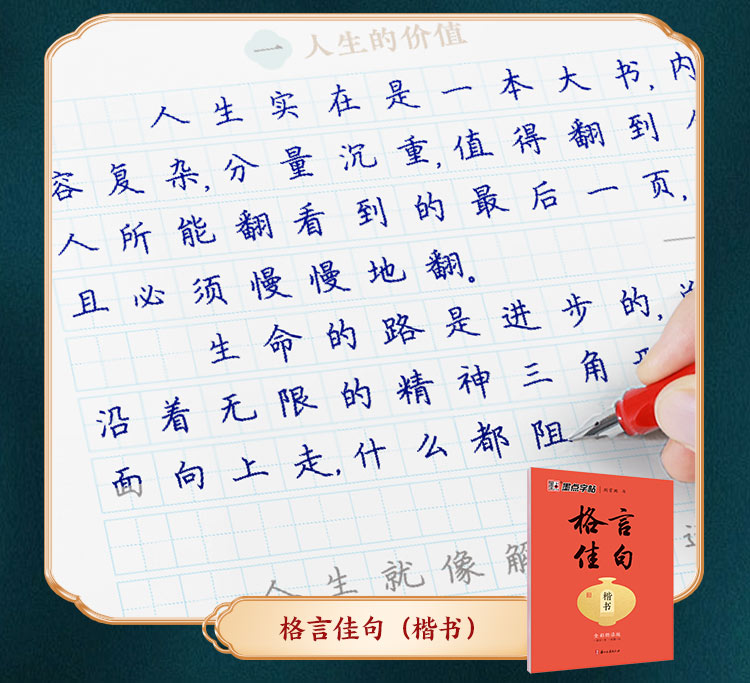 一 人生的价值
人生实在是一本大书,内
容复杂,分量沉重,值得翻到
人所能翻看到的最后一页,
且必须慢慢地翻。
生命的路是进步的,
沿着无限的精神三角
面向上走,什么都阻
人生就像解
格言佳句（楷书）
墨点字帖
格言
佳句
楷书